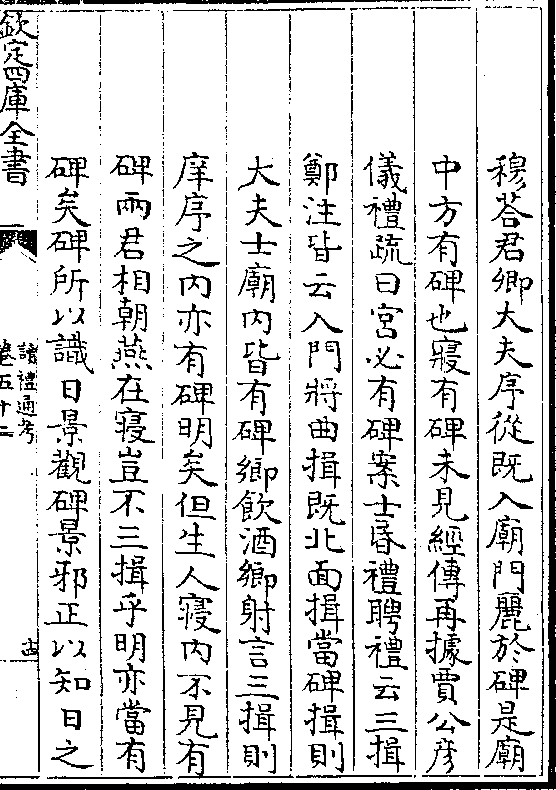 穆荅君卿大夫序從既入廟門麗於碑是廟
中方有碑也寢有碑未見經傳再據賈公彦
儀禮疏曰宮必有碑案士昏禮聘禮云三揖
鄭注皆云入門將曲揖既北面揖當碑揖則
大夫士廟内皆有碑鄉飲酒鄉射言三揖則
庠序之内亦有碑明矣但生人寢内不見有
碑兩君相朝燕在寢豈不三揖乎明亦當有
碑矣碑所以識日景觀碑景邪正以知日之
欽定四庫全書
讀禮通考
卷五十二